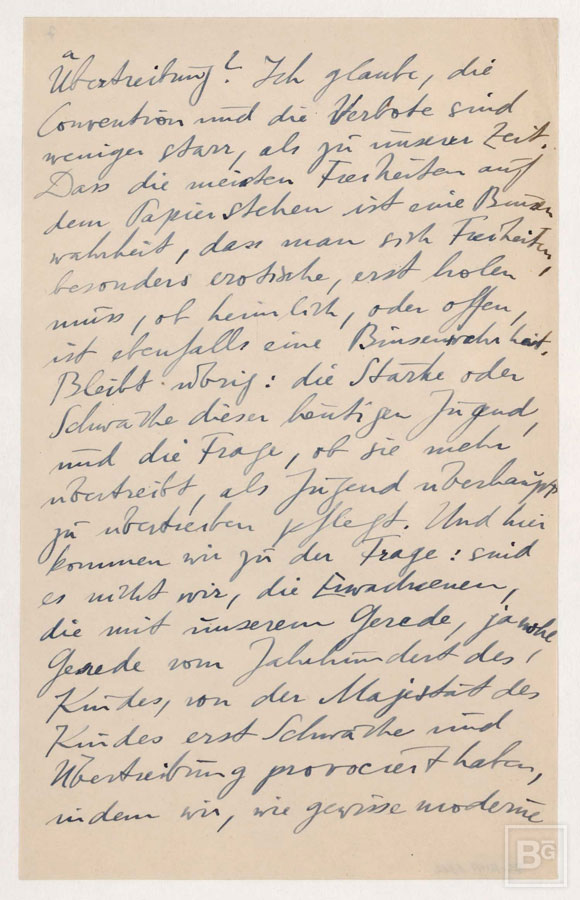 Übertreibung? Ich glaube, die
Convention und die Verbote sind
weniger starr, als zu unserer Zeit.
Dass die meisten Freiheiten auf
dem Papier stehen ist eine Binsen
wahrheit, dass man sich Freiheiten,
besonders erotische, erst holen
muss, ob heimlich, oder offen,
ist ebenfalls eine Binsenwahrheit.
Bleibt übrig: die Stärke oder
Schwäche dieser heutigen Jugend,
und die Frage, ob sie mehr
übertreibt, als Jugend überhaupt
zu übertreiben pflegt. Und hier
kommen wir zu der Frage: sind
es nicht wir, die Erwachsenen,
die mit unserem Gerede, ja
Gerede vom Jahrhundert des
Kindes, von der Majestät des
Kindes erst Schwäche und
Übertreibung provociert haben,
indem wir, wie gewisse moderne
BG